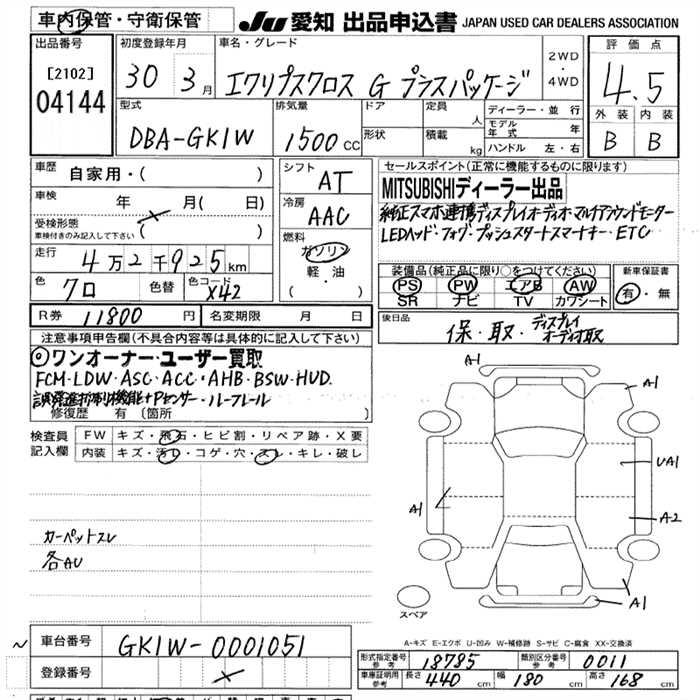 車内保管・守衛保管
JU 愛知 出品申込書 JAPAN USED CAR DEALERS ASSOCIATION
出品番号
[2102]
04144
初度登録年月
30年 3月
車名・グレード
エクリプスクロス G プラスパッケージ
2WD
・
4WD
評価点
4.5
外装 内装
B B
型式
DBA-GK1W
排気量
1500 CC
ドア
形状
定員 人
積載 kg
ディーラー・並行
モデル年式 年
ハンドル 左・右
車歴 自家用・( )
車検 年 月( 日)
受検形態
車検付きのみ記入して下さい ( )
走行 4万2千925km
色 クロ 色替 色コード X42
シフト AT
冷房 AAC
燃料
ガソリン
軽・油
( )
セールスポイント(正常に機能するものに限ります)
MITSUBISHIディーラー出品
純正スマホ連携ディスプレイオーディオ・マルチアラウンドモニター
LEDヘッド・フォグ・プッシュスタートスマートキー・ETC
装備品(純正品に限り○をつけてください)
PS PW エアB AW
SR ナビ TV カワシート
新車保証書
有・無
R券 11800 円
名変期限 月 日
後日品 保・取・ディスプレイオーディオ取
注意事項申告欄(不具合内容等は具体的に記入して下さい)
◎ワンオーナー・ユーザー買取
FCM・LDW・ASC・ACC・AHB・BSW・HUD
誤発進抑制機能+Pセンサー・ルーフレール
修復歴 有 (箇所 )
検査員記入欄
FW キズ・飛石・ヒビ割・リペア跡・X要
内装 キズ・汚レ・コゲ・穴・スレ・キレ・破レ
カーペットスレ
各AU
A1
A1
UA1
A1
A2
A1
A1
スペア
A-キズ E-エクボ U-凹み W-補修跡 S-サビ C-腐食 XX-交換済
車台番号 GK1W-0001051
登録番号
形式指定番号 参考 18785
類別区分番号 参考 0011
車庫証明用 参考 長さ 440cm 幅 180cm 高さ 168cm